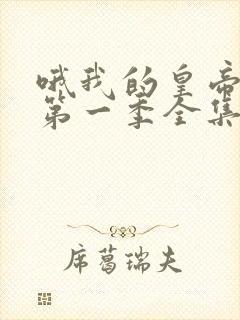 哦我的皇帝
第一季全集
席葛瑞夫